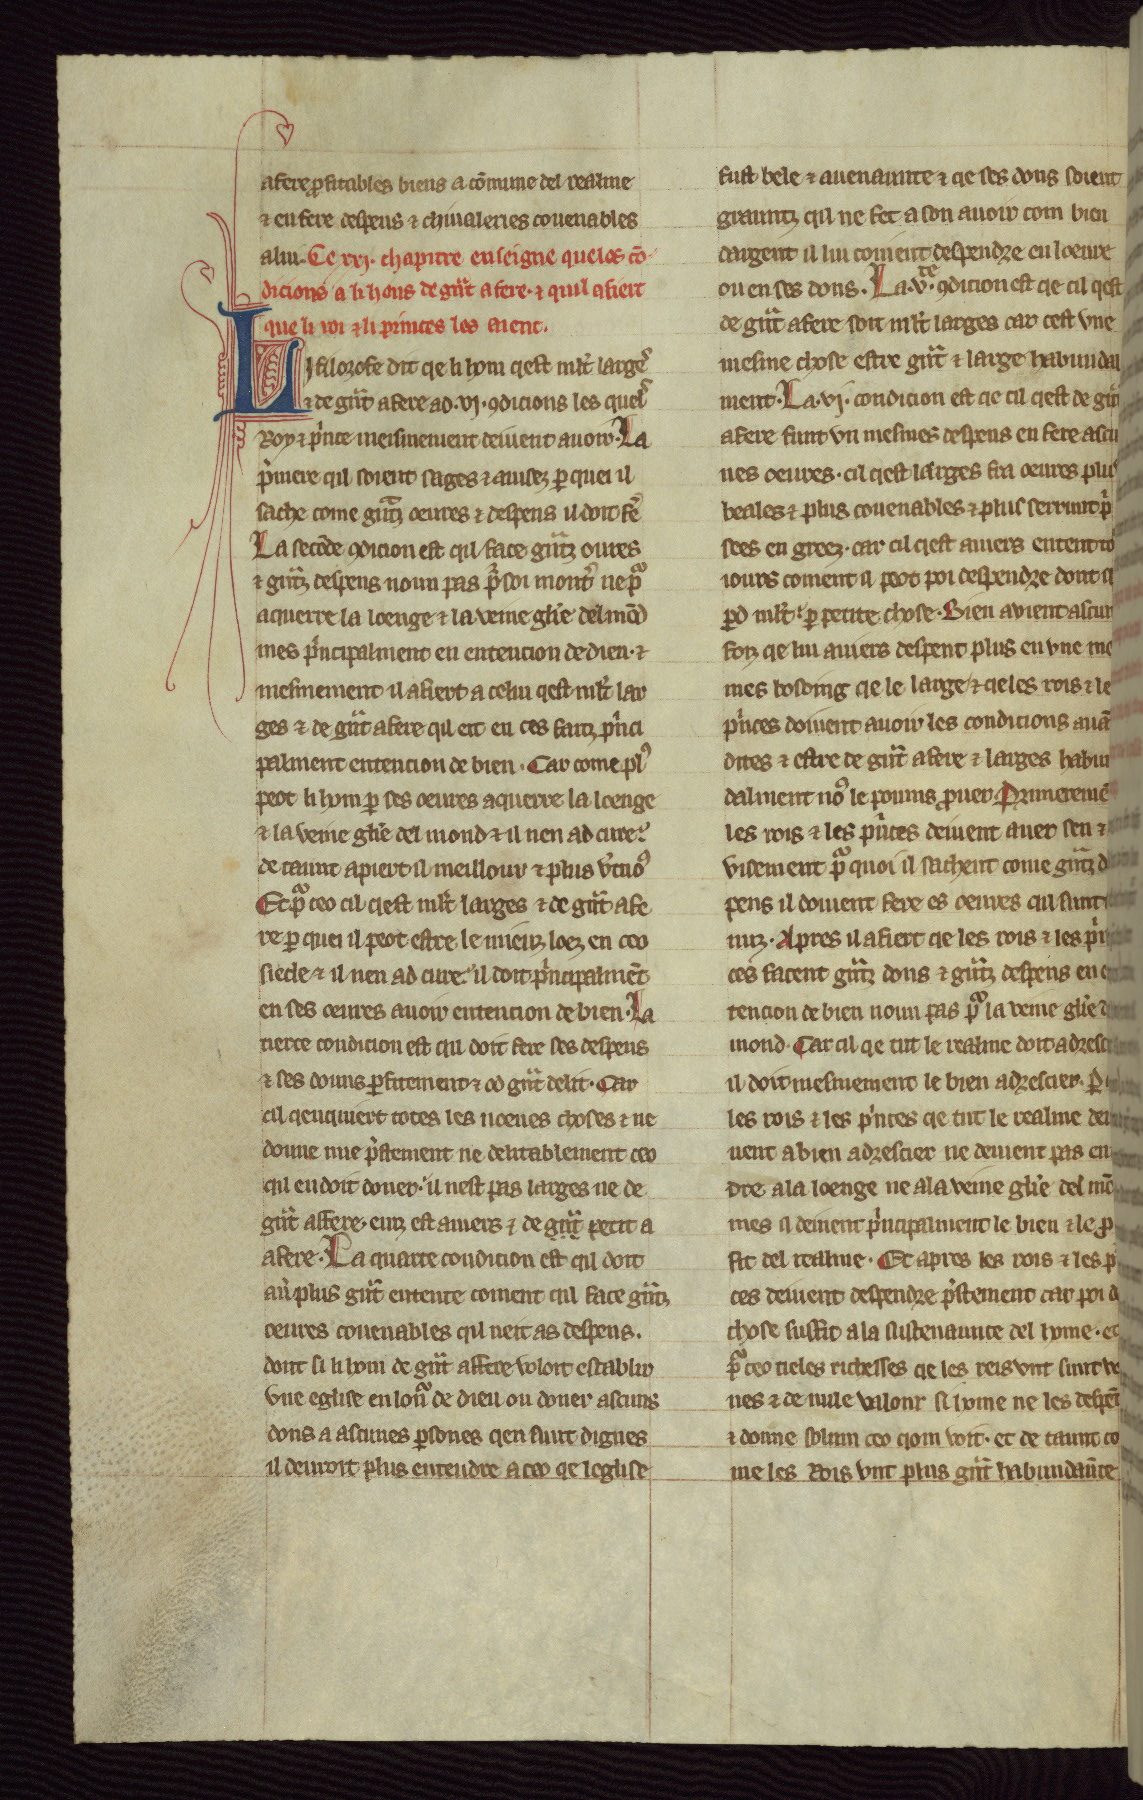 afere profitables biens a cõmune del realme
⁊ en fere despens ⁊ chiualeries couenables
a lui. Ce xxj. chapitre enseigne queles cõ-
dicions a li hons de gũt afere. ⁊ quil afiert
que li roi ⁊ li princes les aient.
Li filozofe dit qe li hom qest ml̃t large
⁊ de gũt afere ad .vj. ꝯdicions les quel
Roy ⁊ pͥnce meismement deiuent auoir. La
pͥmere qil soient sages ⁊ auisez ꝑ quei il
sache come gũtz oeures ⁊ despens il doit fer̉
La secõde ꝯdicion est qil face gũtz oures
⁊ gũtz despens noun pas pͬ soi monter̉ ne pͬ
aquerre la loenge ⁊ la veine glĩe del mõd
mes pͥncipalment en entencion de dieu. ⁊
mesmement il afiert a celui qest ml̃t lar
ges ⁊ de gũt afere qil eit en ces faitz pͥnci
palment entencion de bien. Car come plꝰ
peot li hom ꝑ ses oeures aquerre la loenge
⁊ la veine glĩe del mond ⁊ il nen ad cure
de taunt apiert il meillour ⁊ plus v̉tuoꝰ
Et pͬ ceo cil qest ml̃t larges ⁊ de gũt afe
re ꝑ quei il peot estre le mieuz loez en ceo
siecle ⁊ il nen ad cure il doit pͥncipalmẽt
en ses oeures auoir entencion de bien. La
tierce condicion est qil doit fere ses despens
⁊ ses douns ꝑfitement ⁊ od gũt delit. Car
cil qenquiert totes les noenes choses ⁊ ne
donne mie pͥstement ne delitablement ceo
qil en doit doner. il nest pas larges ne de
gũt affere. einz est auiers ⁊ de gũt petit a
afere. La quarte condition est qil doit
auꝰ plus gũt entente coment qil face gũtz
oeures couenables qil neit as despens.
dont si li hom de gũt affere voloit establir
vne eglise en lonͬ de dieu ou doner ascuns
dons a ascunes ꝑsones qen sunt dignes
il deuroit plus entendre a ceo qe leglise
fust bele ⁊ auenaunte ⁊ qe ses dons soient
grauntz qil ne fet a son auoir com bien
dargent il lui couient despendre en loeure
ou en ses dons. La .v.te ꝯdicion est qe cil qest
de gũt afere soit ml̃t larges car cest vne
mesme chose estre gũt ⁊ large habundau
ment. La .vj. condicion est qe cil qest de gũt
afere funt vn mesmes despens en fere ascu
nes oeures. cil qest larges fra oeures plus
beales ⁊ plus couenables ⁊
sees en greez. car cil qest auiers entent to
iours coment il peot poi despendre dont il
ꝑd ml̃t ꝑ petite chose. Bien auient ascun
foiz qe lui auiers despent plus en vne me
mes bosoing qe le large ⁊ qe les rois ⁊ le
pͥnces doiuent auoir les condicions auã
dites ⁊ estre de gũt afere ⁊ larges habun
dalment noꝰ le poums ꝓuer. Primeremẽ
les rois ⁊ les pͥnces deiuent auer sen ⁊
visement pͬ quoi il sachent come gũtz d
pens il doiuent fere es oeures qil funt
miz. Apres il afiert qe les rois ⁊ les pͥn
ces facent gũtz dons ⁊ gũtz despens en e
tencion de bien noun pas pͬ la veine glĩe d
mond. Car cil qe tut le realme doit adresc
il doit mesmement le bien adrescier.
les rois ⁊ les pͥnces qe tut le realme dei
uent a bien adrescier ne deiuent pas en
dre a la loenge ne a la veine glĩe del mõ
mes il deiuent pͥncipalment le bien ⁊ le ꝓ
fit del realme. Et apres les rois ⁊ les p
ces deiuent despendre pͥstement car poi d
chose suffit a la sustenaunce del home. et
pͬ ceo tieles richesses qe les reis vnt sunt ve
nes ⁊ de nule valour si home ne les despẽt
⁊ donne solum ceo qom voit. et de taunt co
me les Rois vnt plus gũt habundaũce